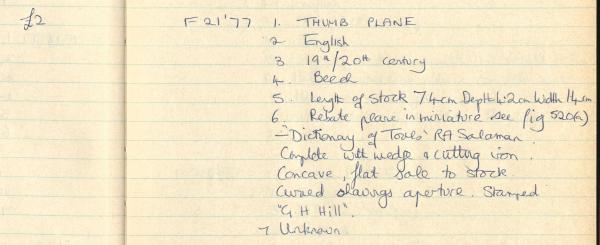 £2 F21'77 1. THUMB PLANE
2 English
3 19th/20th century
4. Beech
5. Length of stock 7.4cm Depth 4.2cm Width 1.4cm
6. Rebate plane in miniature see fig 520(a)
- Dictionary of Tools' RA Salaman.
Complete with wedge & cutting iron.
Concave, flat sole to stock.
Curved shavings aperture. Stamped
"G H Hill".
7 Unknown